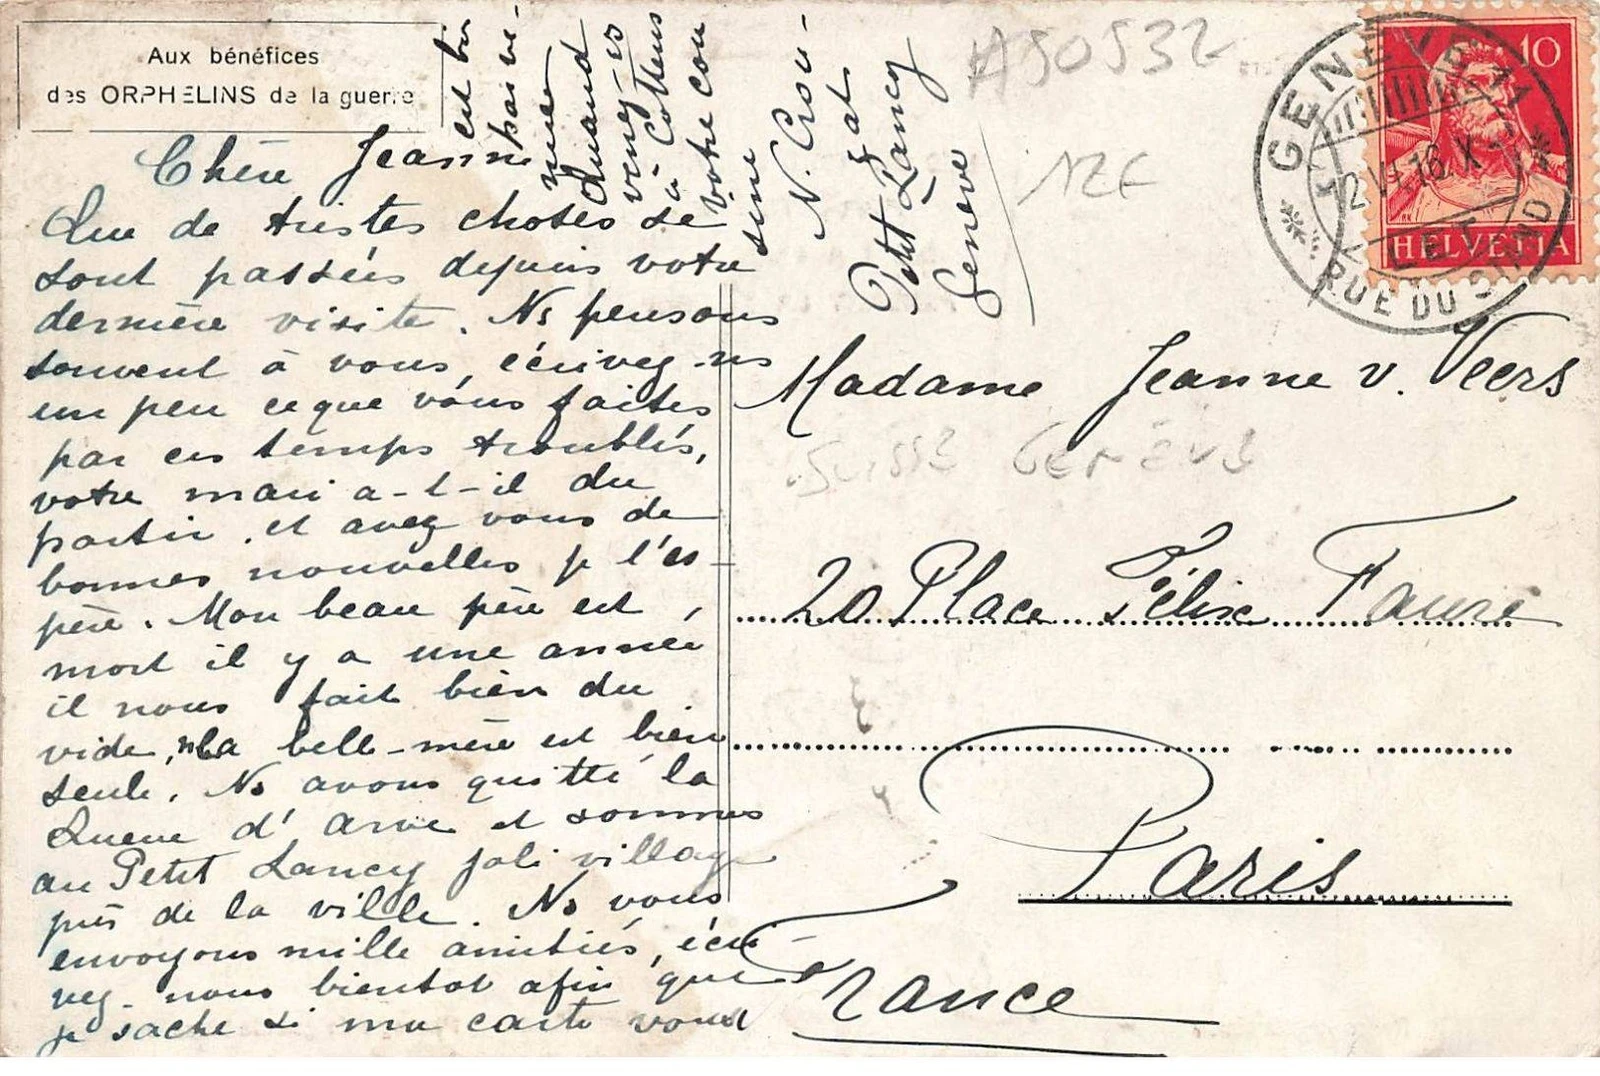 Aux bénéfices
des ORPHELINS de la guerre
Chère Jeanne
Que de tristes choses se
sont passées depuis votre
dernière visite. Ns pensons
souvent à vous, écrivez-ns
un peu ce que vous faites
par ces temps troublés,
votre mari a-t-il du
partir, et avez vous de
bonnes nouvelles je l'es-
père. Mon beau père est
mort il y a une année
il nous fait bien du
vide, la belle-mère est bien
seule. Ns avons quitté la
Queue d'Arve et sommes
au Petit Lancy joli village
près de la ville. Ns vous
envoyons mille amitiés, écri-
vez-nous bientot afin que
je sache si ma carte vous
est bien
parve-
nue
Quand
venez-vs
à Cottens
votre cou-
sine
N. Crou-
gat
Petit Lancy
Genève
A50532
12E
GENEVE
12 VI 16 X
RUE DU STAND
10
HELVETIA
Madame Jeanne v. Veers
SUISSE GENÈVE
20 Place Félix Faure
Paris
France